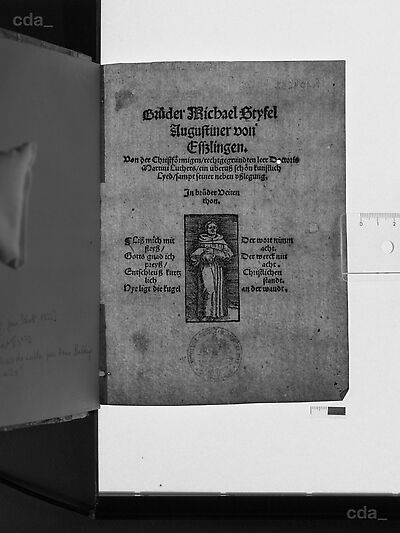 cda_
Brůder Michael Styfel
Augustiner von
Esszlingen.
Von der Christförmigen/ rechtgegrundten leer Doctoris
Martini Luthers/ ein überuß schön kunstlich
Lyed/ sampt seiner neben vßlegung.
In brůder Veiten
thon.
¶ Liß mich mit
fleyß/
Gotts gnad ich
preyß/
Entschleüß kurtz
lich
Hye ligt die kugel
Der wort nimm
acht.
Der werck nitt
acht.
Christlichen
standt.
an der wandt.
0 1 2
cda_